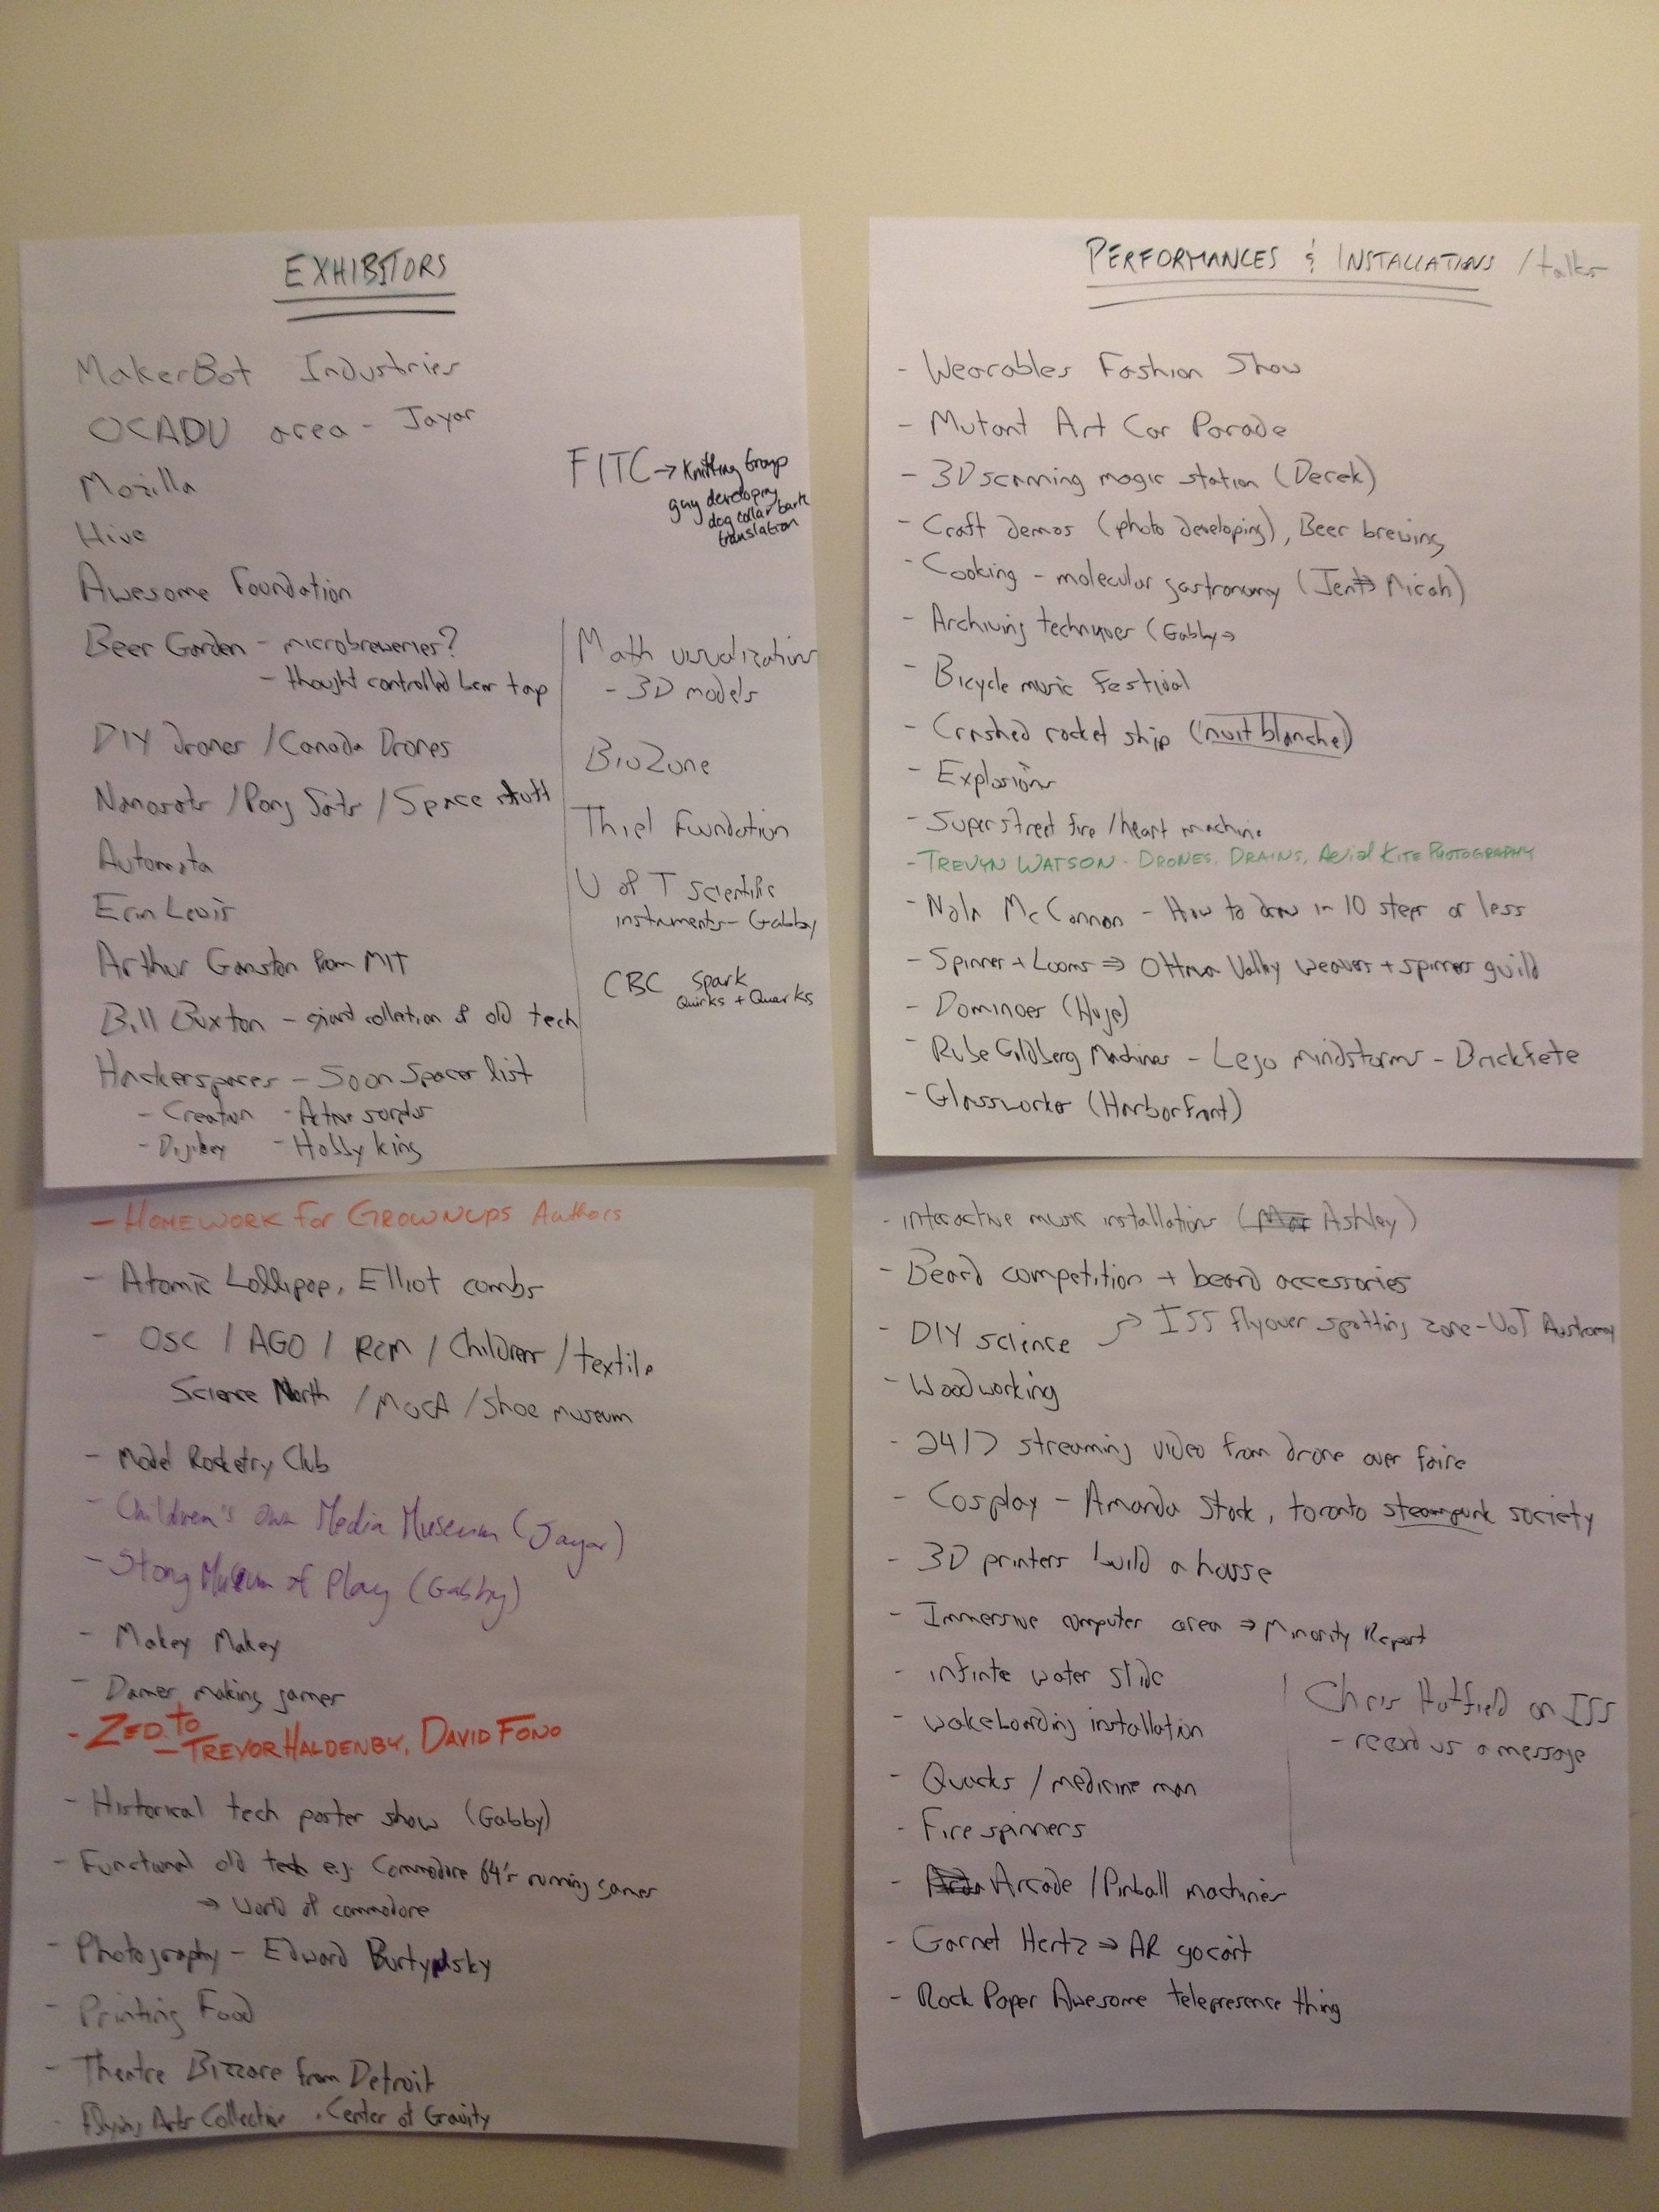 EXHIBITORS
MakerBot Industries
OCADU area - Jayar
Mozilla
Hive
Awesome Foundation
Beer Garden - microbreweries?
- thought controlled beer tap
DIY drones / Canada Drones
Nanosats / Pong Sats / Space stuff
Automata
Erin Lewis
Arthur Ganston from MIT
Bill Buxton - giant collection of old tech
Hackerspaces - Soon Spacer list
- Creatron
- Digikey - Hobby king
FITC → Knitting Group
guy developing
dog collar bark
translation
Math visualizations
- 3D models
BioZone
Thiel Foundation
U of T Scientific
instruments - Gabby
CBC Spark
Quirks + Quarks
- HOMEWORK for GROWNUPS Authors
- Atomic Lollipop, Elliot combs
- OSC / AGO / ROM / Children / textile
Science North / MOCA / Shoe museum
- Model Rocketry Club
- Children's own Media Museum (Jayar)
- Strong Museum of Play (Gabby)
- Makey Makey
- Dames making games
- ZED.to
- TREVOR HALDENBY, DAVID FONO
- Historical tech poster show (Gabby)
- Functional old tech e.g. Commodore 64's running games
→ World of commodore
- Photography - Edward Burtynsky
- Printing Food
- Theatre Bizzare from Detroit
- Flying Arts Collective, Center of Gravity
PERFORMANCES & INSTALLATIONS / talks
- Wearables Fashion Show
- Mutant Art Car Parade
- 3D scanning magic station (Derek)
- Craft demos (photo developing), Beer brewing
- Cooking - molecular gastronomy (Jen → Micah)
- Archiving techniques (Gabby →
- Bicycle music festival
- Crashed rocket ship (nuit blanche)
- Explosions
- Super street fire / heart machine
- TREVYN WATSON - DRONES, DRAINS, Aerial KITE PHOTOGRAPHY
- McCannon - How to draw in 10 steps or less
- Spinner + Looms ⇒ Ottawa Valley weavers + spinners guild
- Dominoes (Huge)
- Rube Goldberg Machines - Lego mindstorms - Brickfete
- Glassworks (Harborfront)
- interactive music installations (Ashley)
- Beard competition + beard accessories
- DIY science → ISS flyover spotting zone - UoT Astronomy
- Woodworking
- 24/7 streaming video from drone over faire
- Cosplay - Amanda Stock, toronto steampunk society
- 3D printers build a house
- Immersive computer area → Minority Report
- infinte water slide
- wakeboarding installation
- Quacks / medicine man
- Fire spinners
- Arcade / Pinball machines
- Garnet Hertz ⇒ AR gocart
- Rock Paper Awesome telepresence thing
Chris Hatfield on ISS
- record us a message